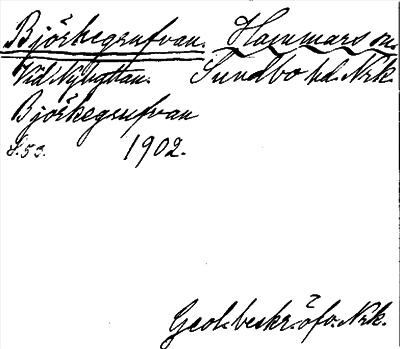 Björkegrufvan. Hammars sn.
Vid Nyhyttan. Sundbo hd. Nrk
Björkegrufvan
S. 53. 1902.
Geol. beskr. öfv. Nrk.